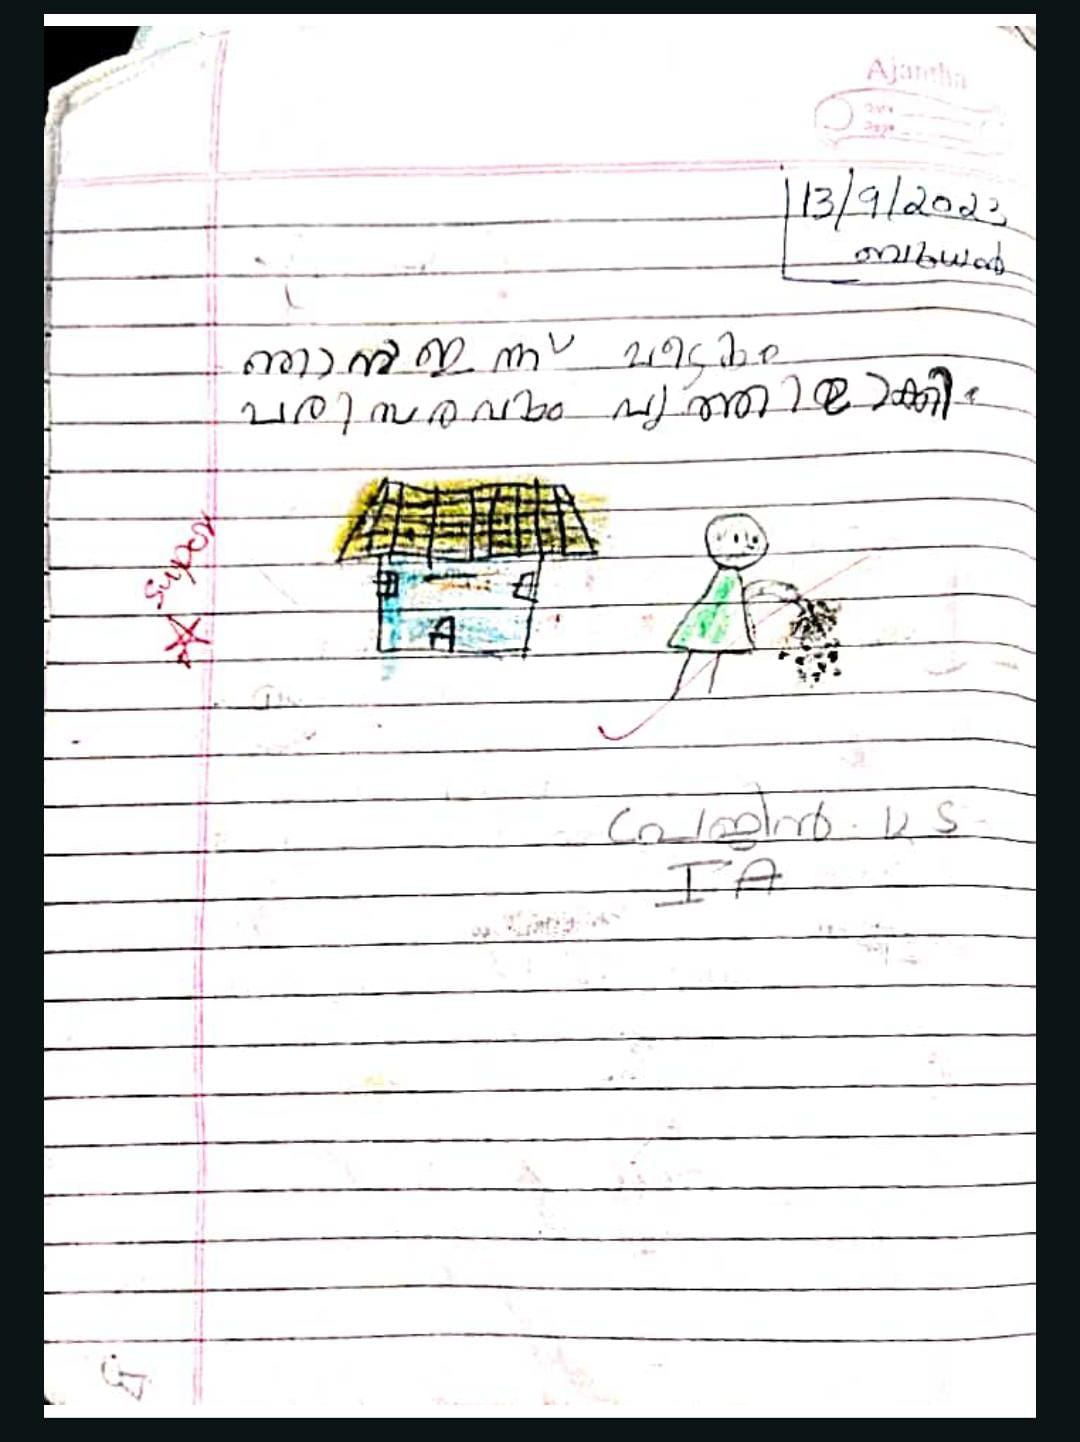 Ajantha
Date
Page
13/9/2023
ബുധൻ
ഞാൻ ഇന്ന് വീടും
പരിസരവും വൃത്തിയാക്കി.
Super
A
K S
I A